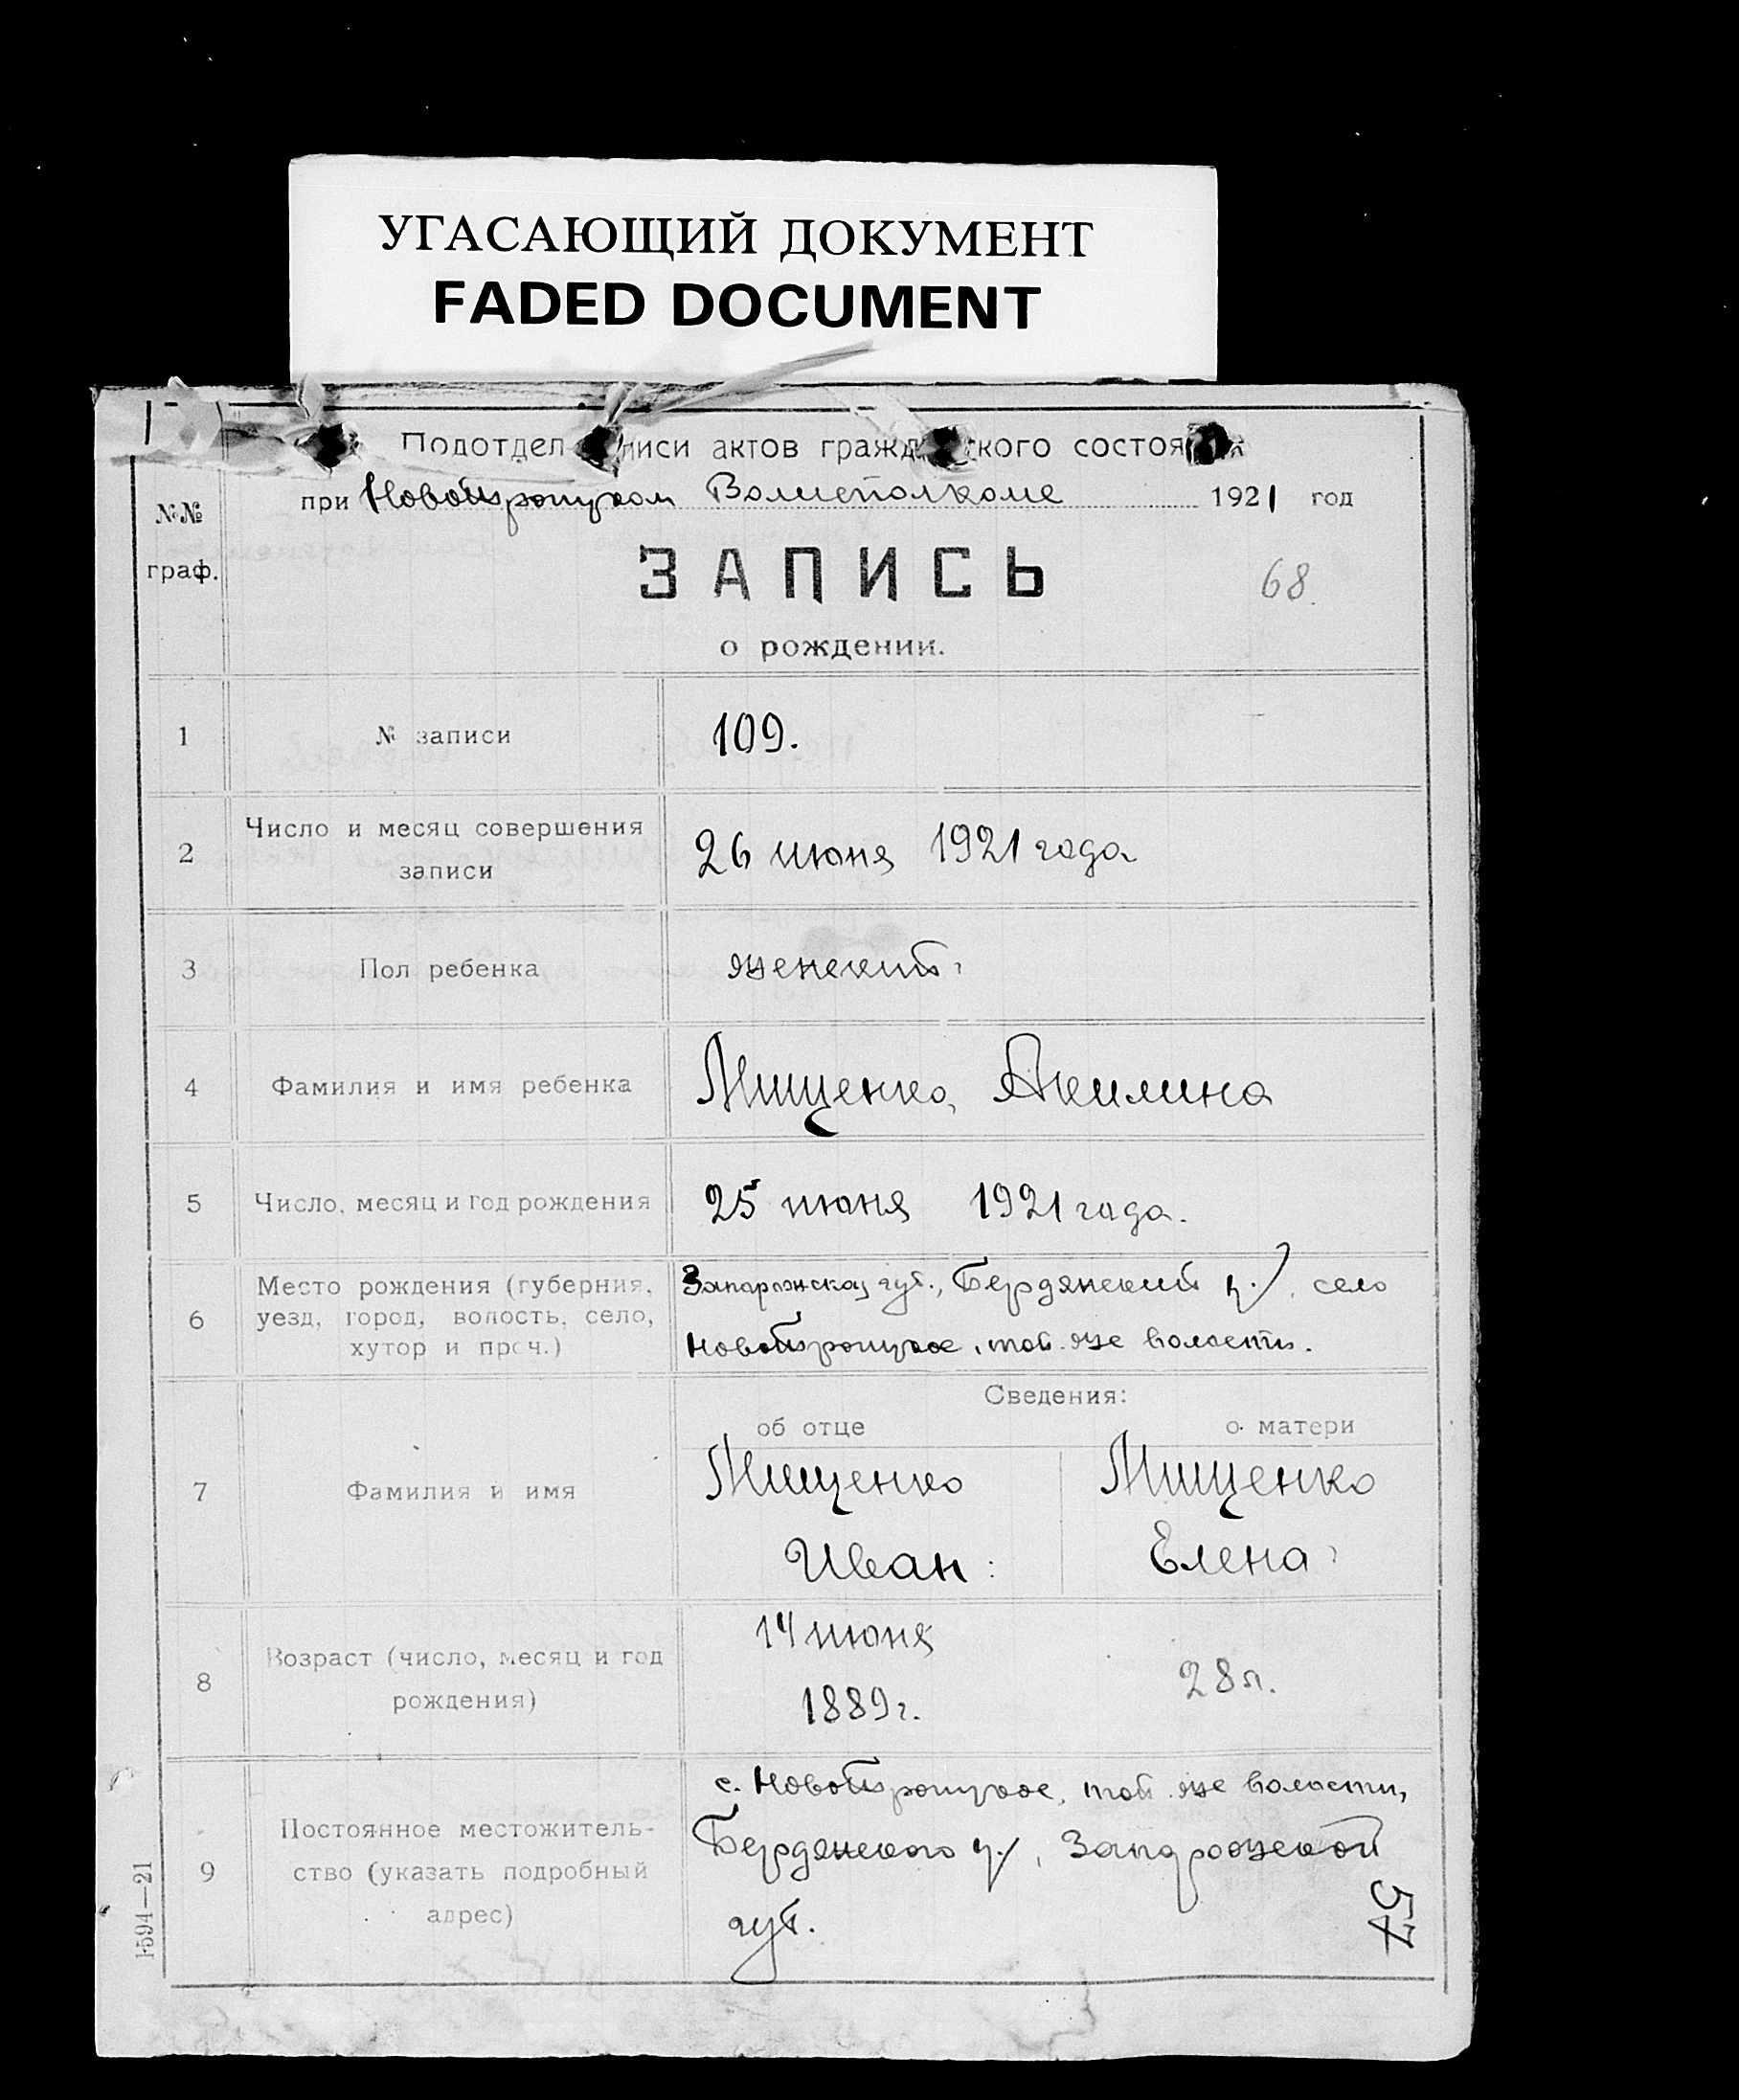 УГАСАЮЩИЙ ДОКУМЕНТ
FADED DOCUMENT
Подотдел записи актов гражданского состояния
при Новотроицком Волисполкоме 1921 год
№№
граф.
ЗАПИСЬ
68
о рождении.
1 № записи 109.
2 Число и месяц совершения
записи
26 июня 1921 года
3 Пол ребенка женский
4 Фамилия и имя ребенка Мищенко, Акилина
5 Число, месяц и год рождения 25 июня 1921 года.
6 Место рождения (губерния,
уезд, город, волость, село,
хутор и проч.)
Запорожская губ., Бердянский у., село
Новотроицкое, той же волости.
Сведения:
об отце о матери
7 Фамилия и имя
Мищенко Мищенко
Иван Елена
8 Возраст (число, месяц и год
рождения)
14 июня
1889 г. 28 л.
9 Постоянное местожитель-
ство (указать подробный
адрес)
с. Новотроицкое, той же волости,
Бердянского у., Запорожской
губ.
57
1594—21